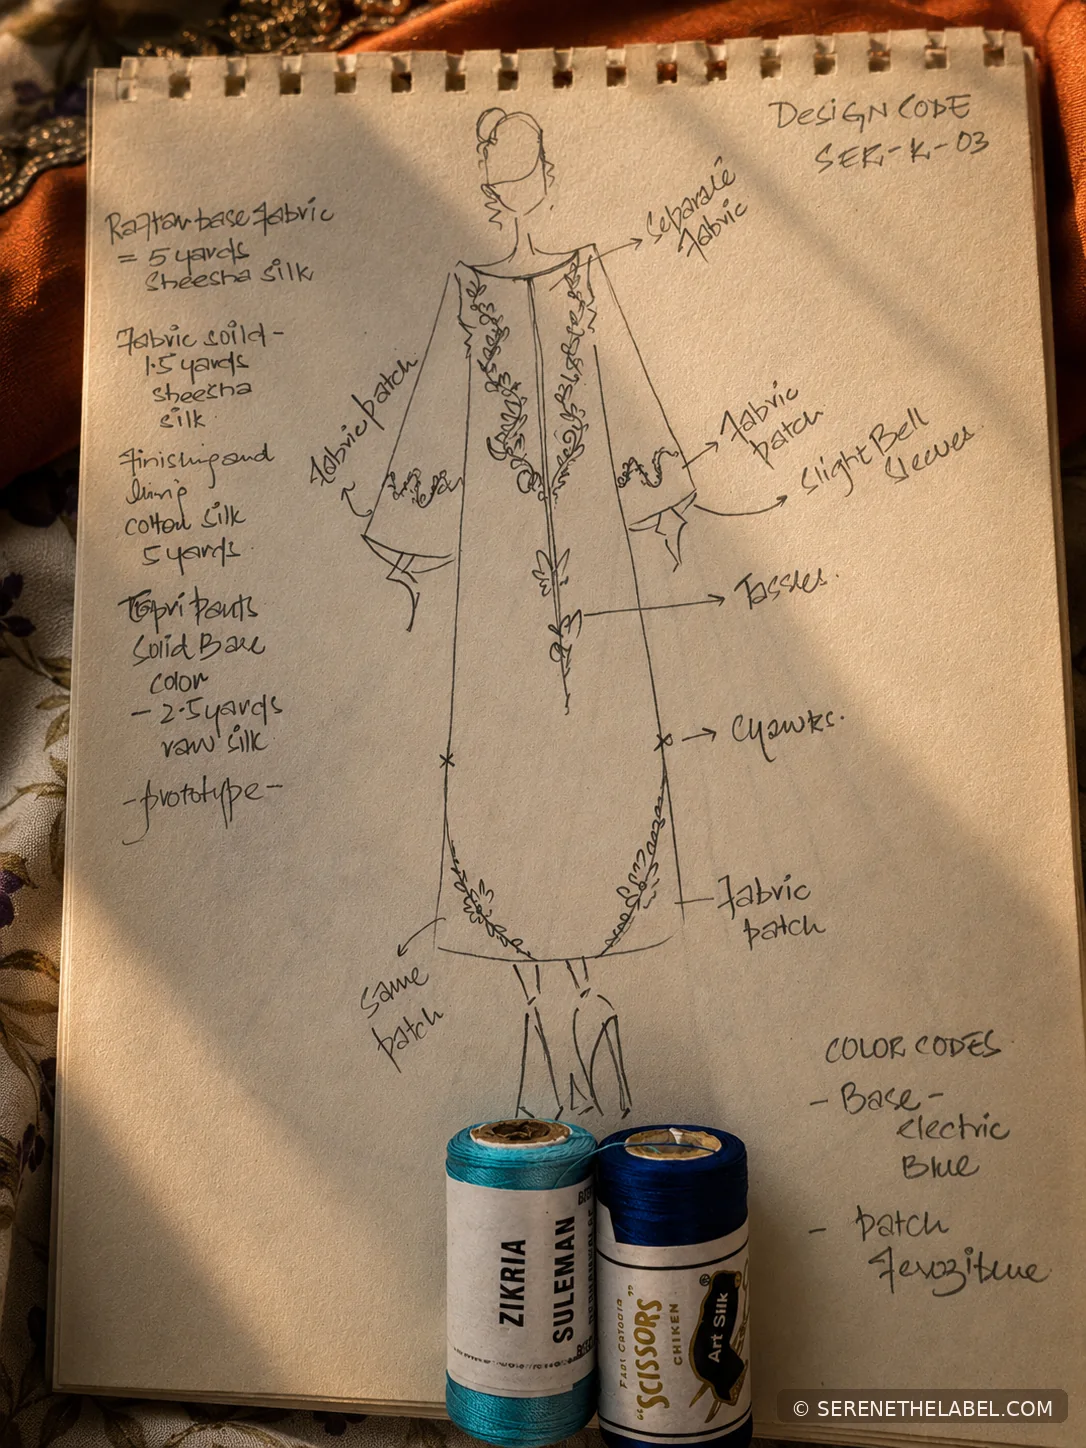 DESiGN CODE
SER-K-03
Kaftan base fabric
= 5 yards
Sheesha silk
Fabric soild -
1.5 yards
sheesha
silk
finishing and
cotton silk
5 yards
pants
Solid Base
color
- 2.5 yards
raw silk
- prototype -
Separate
fabric
Fabric patch
Fabric
patch
slight Bell
sleeves
Tassles.
Chawks.
Fabric
patch
same
patch
COLOR CODES
- Base -
electric
Blue
- patch
ferozi blue
ZIKRIA
SULEMAN
"SCISSORS"
CHIKEN
Art Silk
®
© SERENETHELABEL.COM